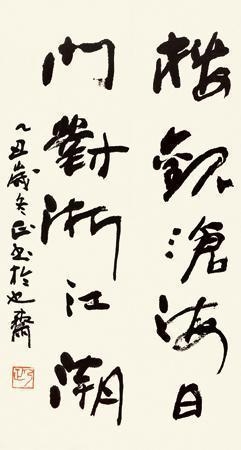 楼觀滄海日
門對浙江潮
乙丑歲冬正書於也齋